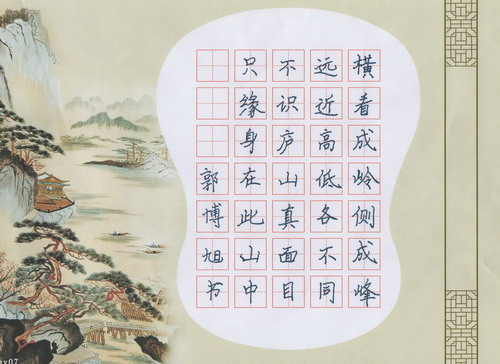 横看成岭侧成峰
远近高低各不同
不识庐山真面目
只缘身在此山中
郭博旭书